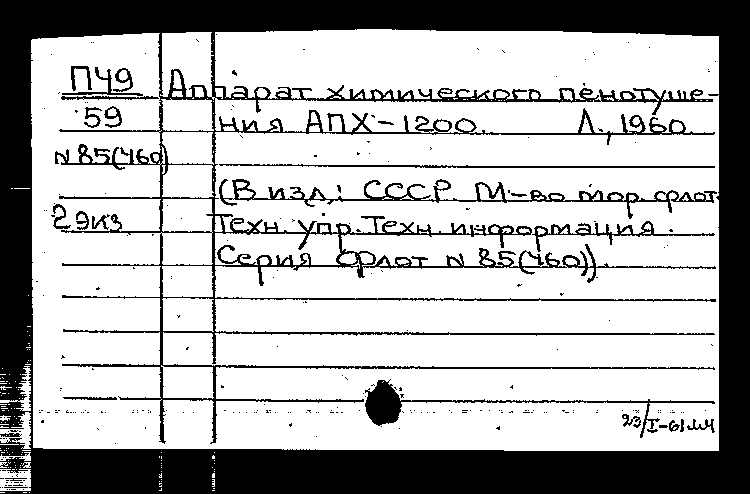 П49 Аппарат химического пенотуше-
59 ния АПХ-1200. Л., 1960.
N 85(460)
(В изд.: СССР. М-во мор. флот.
2 экз Техн. упр. Техн. информация.
Серия Флот N 85(460)).
23/I-61